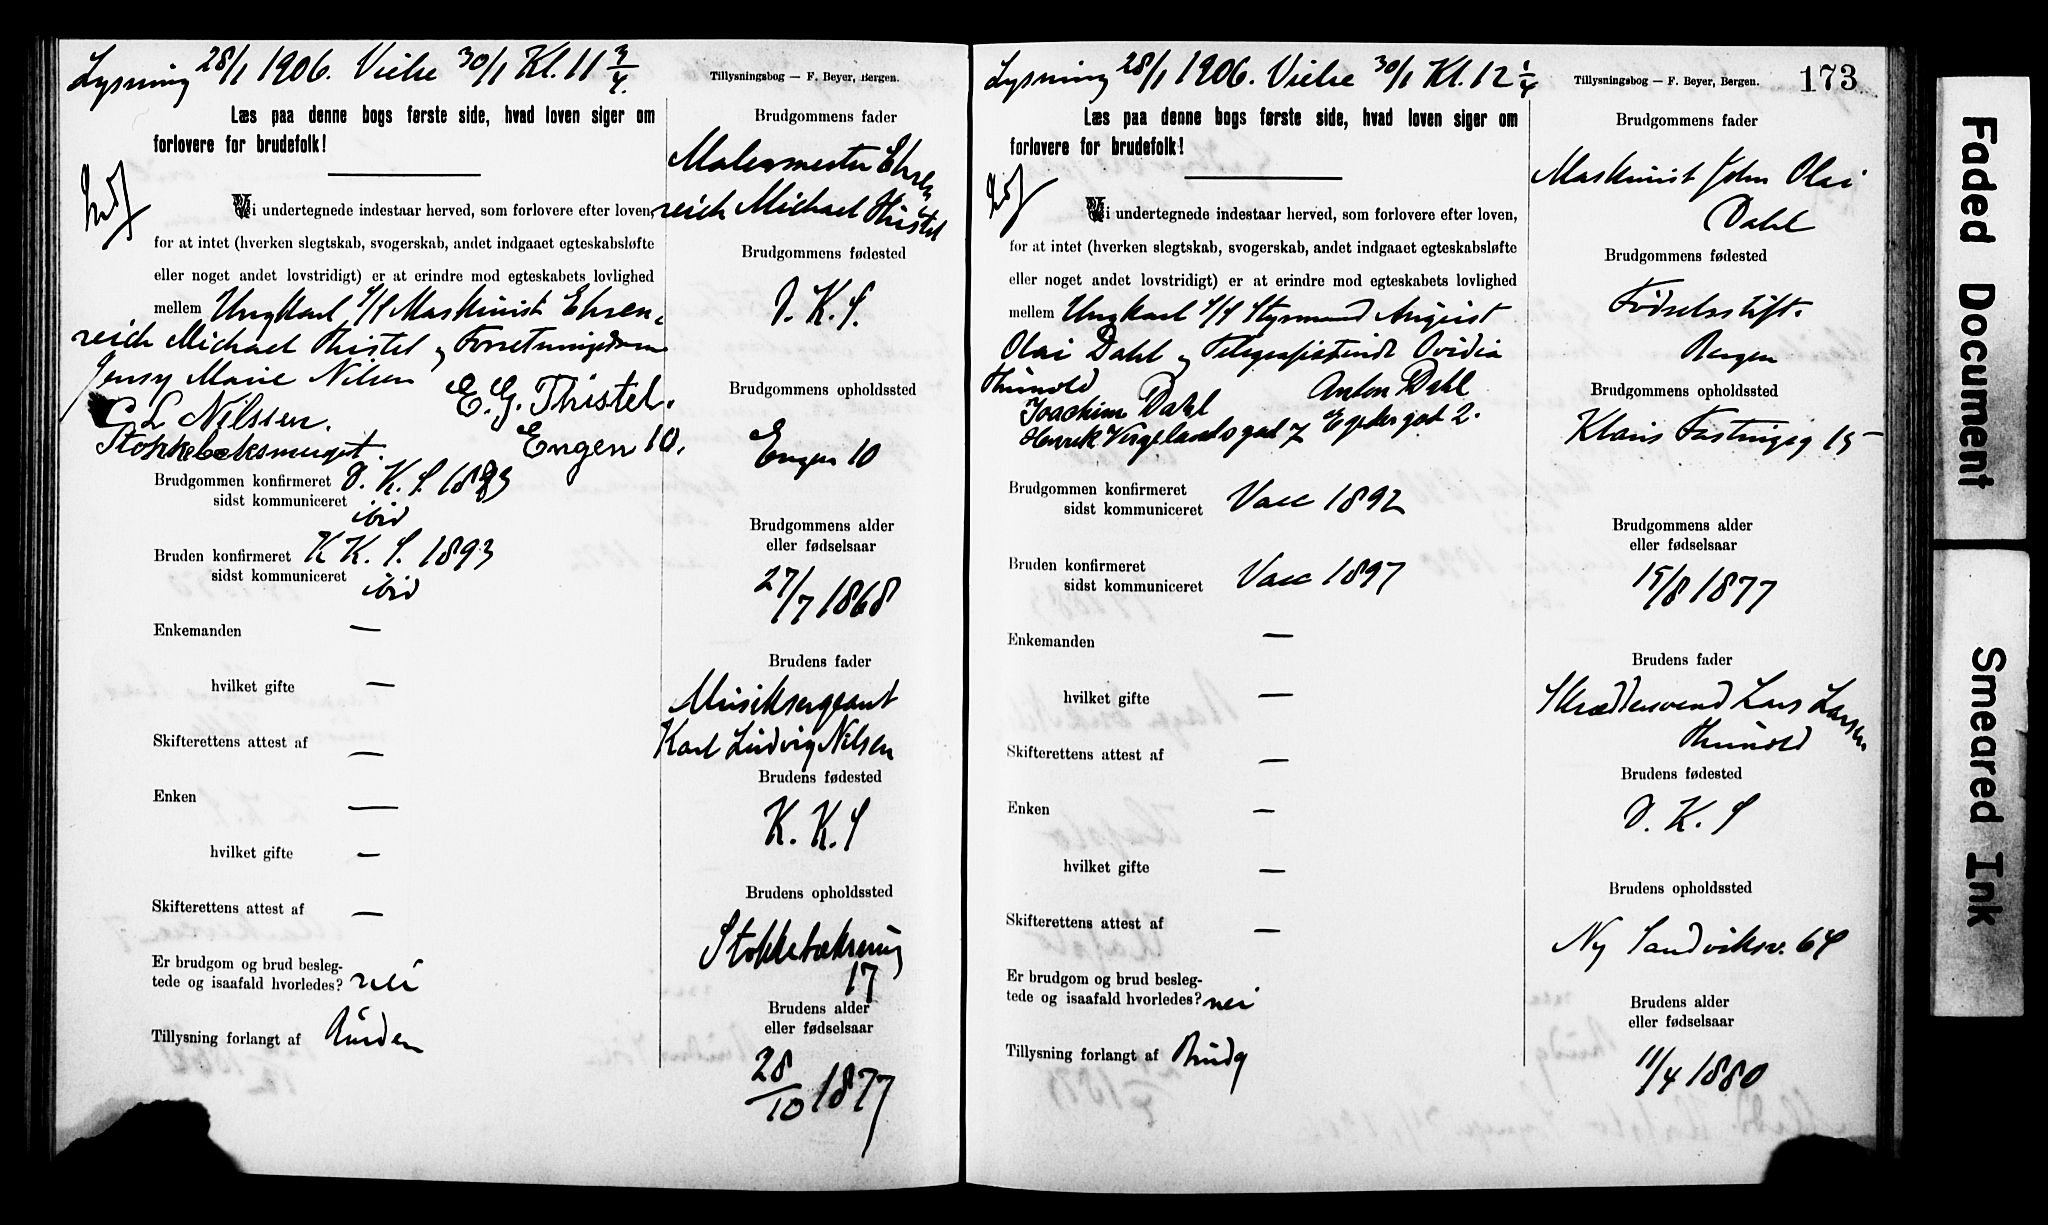 Lysning 28/1 1906. Vielse 30/1 Kl. 11 3/4.
Tillysningsbog — F. Beyer, Bergen.
Læs paa denne bogs første side, hvad loven siger om
forlovere for brudefolk!
Vi undertegnede indestaar herved, som forlovere efter loven,
for at intet (hverken slegtskab, svogerskab, andet indgaaet egteskabsløfte
eller noget andet lovstridigt) er at erindre mod egteskabets lovlighed
mellem Ungkarl s/s Maskinist Ehren-
reich Michael Thistel og Forretningsdame
Jensy Marie Nilsen
C L Nilssen. E. G. Thistel.
Engen 10.
Brudgommen konfirmeret D. K. S. 1883
sidst kommuniceret ibid
Bruden konfirmeret K K. S. 1893
sidst kommuniceret ibid
Enkemanden —
hvilket gifte —
Skifterettens attest af —
Enken —
hvilket gifte —
Skifterettens attest af —
Er brudgom og brud besleg-
tede og isaafald hvorledes? nei
Tillysning forlangt af Bruden
Brudgommens fader
Malermester Ehren
reich Michael Thistel
Brudgommens fødested
D. K. S.
Brudgommens opholdssted
Engen 10
Brudgommens alder
eller fødselsaar
27/7 1868
Brudens fader
Musiksergeant
Karl Ludvig Nilsen
Brudens fødested
K. K. S
Brudens opholdssted
17
Brudens alder
eller fødselsaar
28/10 1877
Lysning 28/1 1906. Vielse 30/1 Kl. 12 1/4
Tillysningsbog — F. Beyer, Bergen.
173
Læs paa denne bogs første side, hvad loven siger om
forlovere for brudefolk!
Vi undertegnede indestaar herved, som forlovere efter loven,
for at intet (hverken slegtskab, svogerskab, andet indgaaet egteskabsløfte
eller noget andet lovstridigt) er at erindre mod egteskabets lovlighed
mellem Ungkarl s/s Styrmand August
Olai Dahl og Telegrafistinde Ovidia
Thunold
Joachim Dahl Anton Dahl
Henrik Vergelandsgad 7 2.
Brudgommen konfirmeret
sidst kommuniceret Vacc 1892
Bruden konfirmeret
sidst kommuniceret Vacc 1897
Enkemanden —
hvilket gifte —
Skifterettens attest af —
Enken —
hvilket gifte —
Skifterettens attest af —
Er brudgom og brud besleg-
tede og isaafald hvorledes? nei
Tillysning forlangt af Brudg
Brudgommens fader
Maskinist John Olai
Dahl
Brudgommens fødested
Fødselsstift.
Bergen
Brudgommens opholdssted
Klaus Fastingsg 15
Brudgommens alder
eller fødselsaar
15/8 1877
Brudens fader
Skræddersvend Lars Larsen
Thunold
Brudens fødested
D. K. S
Brudens opholdssted
Ny Sandviksv. 64
Brudens alder
eller fødselsaar
11/4 1880
Faded Document
Smeared Ink